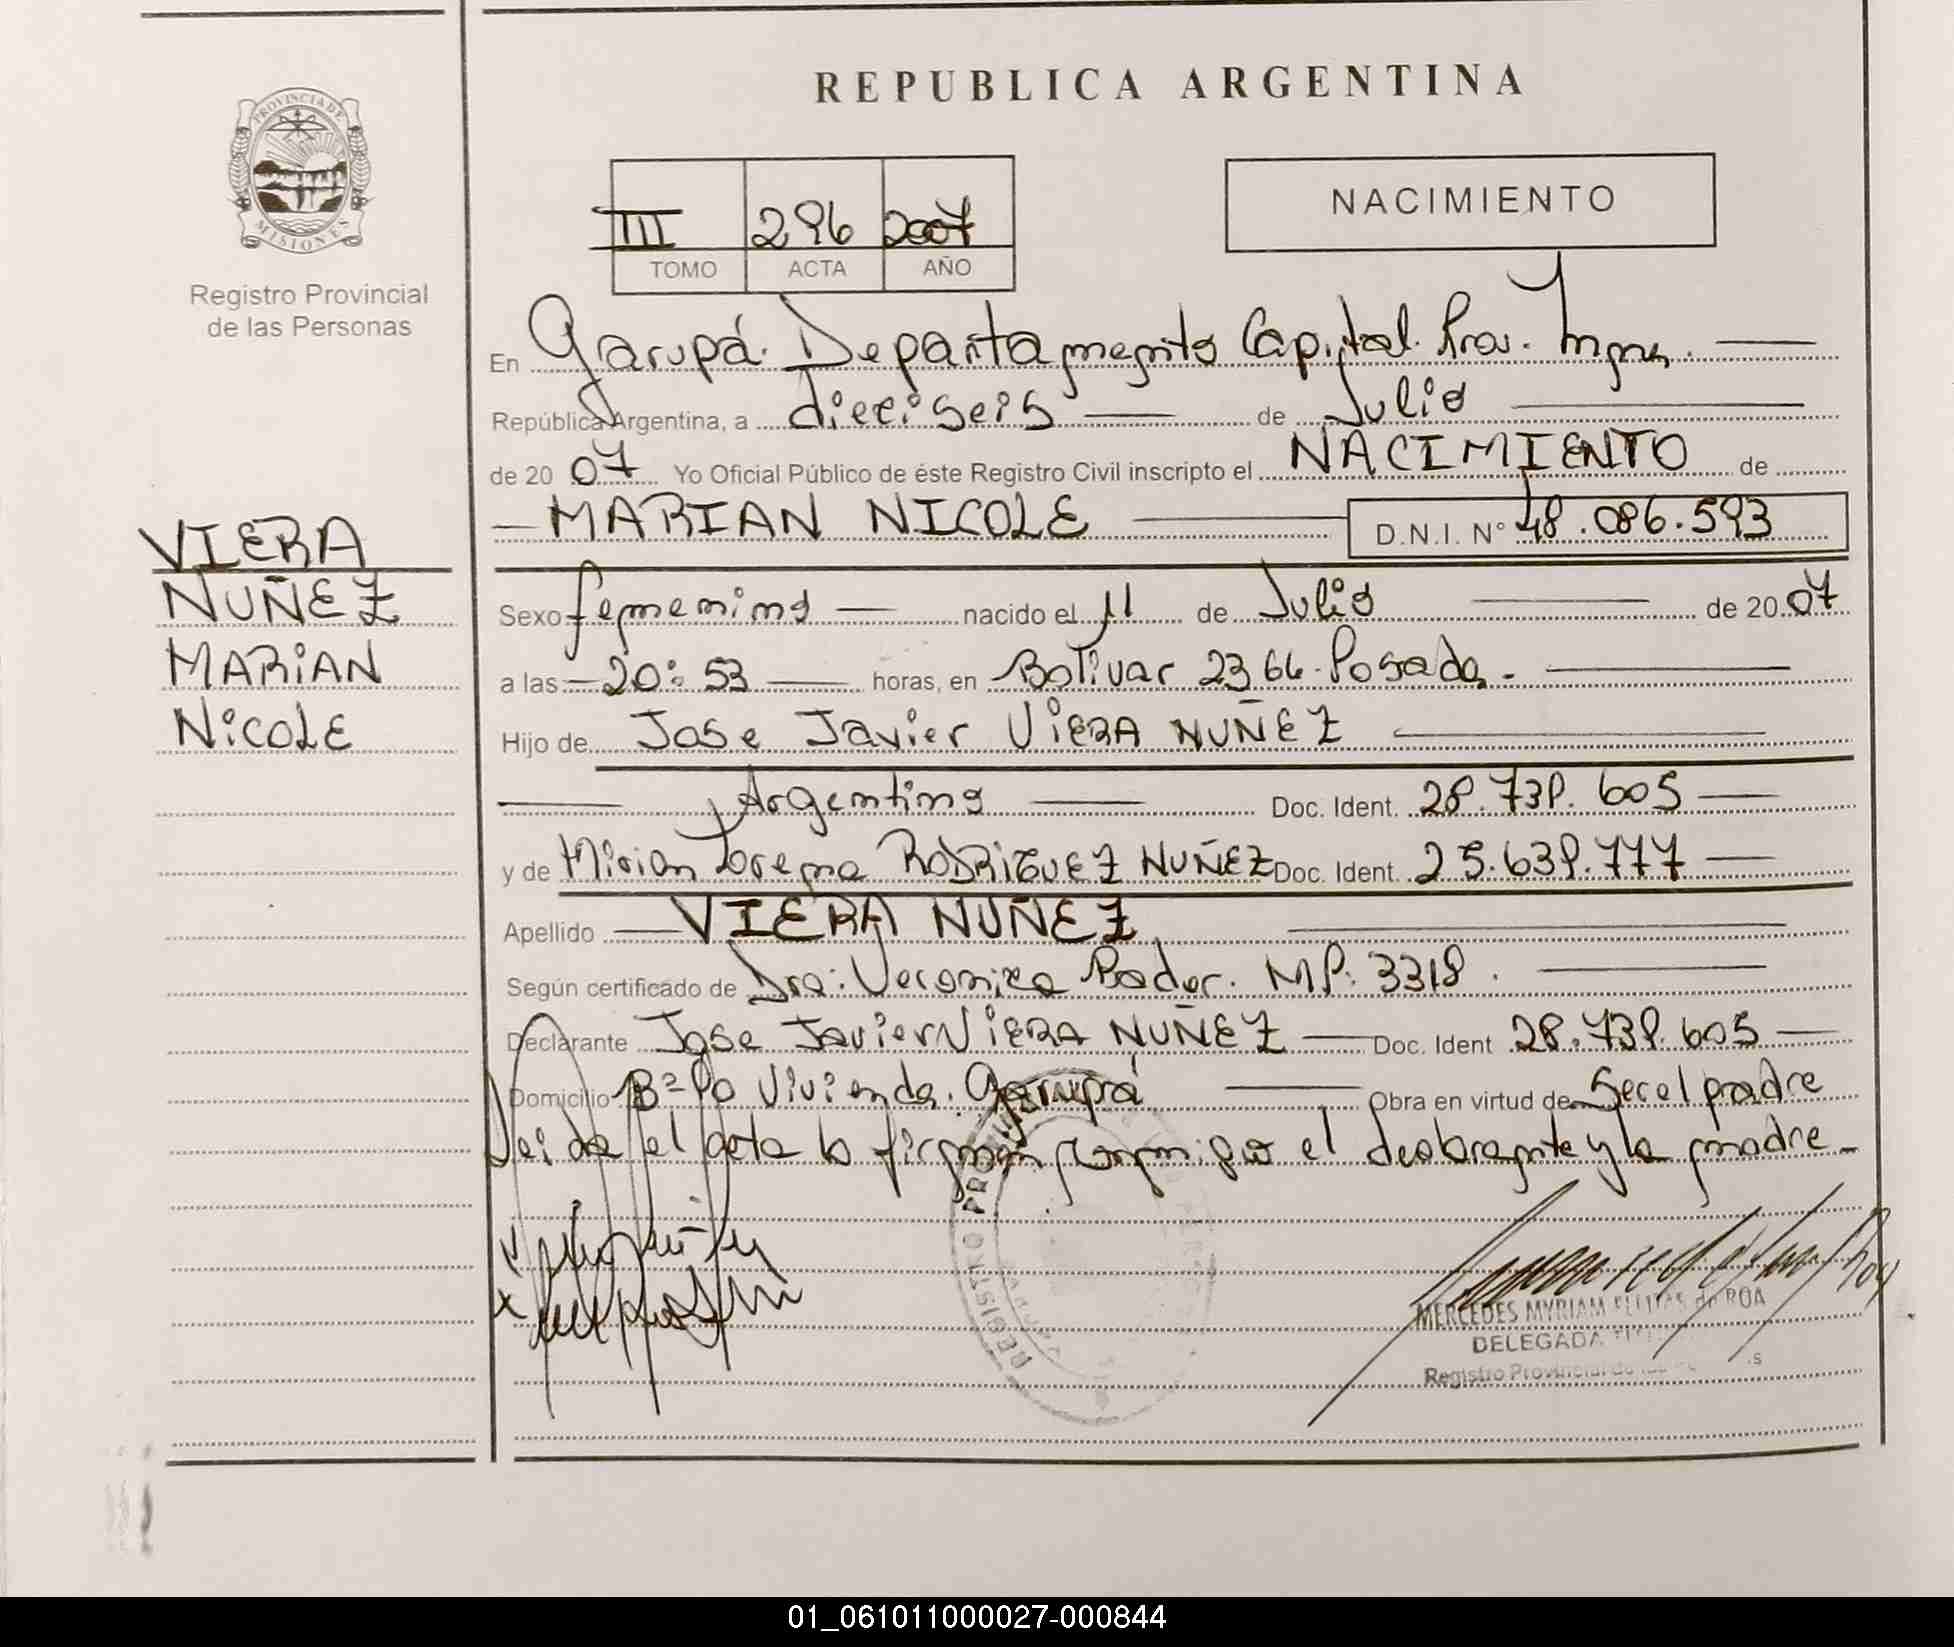 REPUBLICA ARGENTINA
PROVINCIA DE MISIONES
Registro Provincial
de las Personas
III 296 2007
TOMO ACTA AÑO
NACIMIENTO
En Garupá. Departamento Capital. Prov. Mnes.
República Argentina, a dieciseis de Julio
de 2007 Yo Oficial Público de éste Registro Civil inscripto el NACIMIENTO de
MARIAN NICOLE D.N.I. N° 48.086.593
VIERA
NUÑEZ
MARiAN
NiCOLE
Sexo femenino nacido el 11 de Julio de 2007
a las 20:53 horas, en Bolivar 2366. Posadas.
Hijo de Jose Javier ViERA NUÑEZ
Argentino Doc. Ident. 28.739.605
y de Mirian Lorena RODRiGUEZ NUÑEZ Doc. Ident. 25.639.777
Apellido VIERA NUÑEZ
Según certificado de Dra: Veronica Bader. MP: 3318.
Declarante Jose Javier ViERA NUÑEZ Doc. Ident 28.739.605
Domicilio Bº 90 Vivienda. Garupá Obra en virtud de Ser el padre
Leida el acta la firman conmigo el declarante y la madre
REGISTRO
MERCEDES MYRIAM de ROA
DELEGADA
Registro Provincial de las
01_061011000027-000844